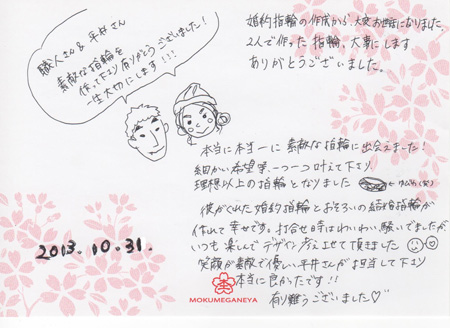 職人さん & 平井さん
素敵な指輪を
作って下さり ありがとうございました!
一生大切にします!!!
婚約指輪の作成から、大変お世話になりました。
2人で作った指輪、大事にします
ありがとうございました。
本当に本当ーに 素敵な指輪に出会えました!
細かい希望等、一つ一つ叶えて下さり、
理想以上の指輪となりました
彼がくれた婚約指輪とおそろいの結婚指輪が
作れて幸せです。打合せ時はわいわい騒いでましたが
いつも楽しんでデザイン考えさせて頂きました
笑顔が素敵で優しい平井さんが担当して下さり
本当に良かったです!!
有り難うございました♡
2013.10.31.
MOKUMEGANEYA